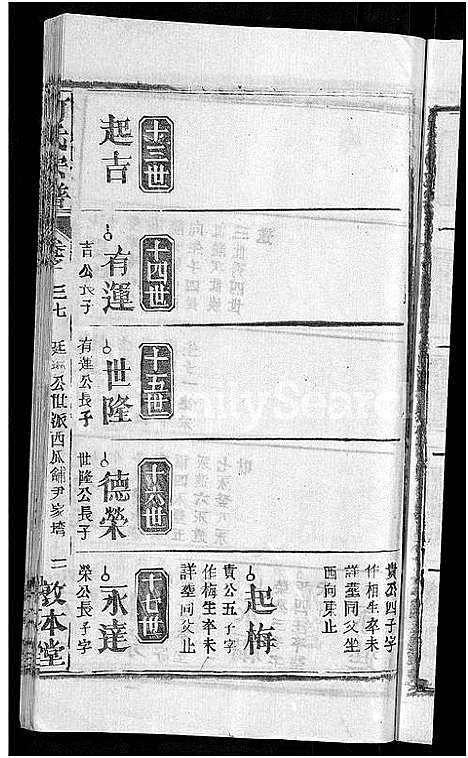 十三世
起吉
十四世
有運
吉公長子
十五世
世隆
有運公長子
十六世
德榮
世隆公長子
貴公四子字
作相生卒未
詳墓同父坐
西向東止
起梅
貴公五子字
作梅生卒未
詳墓同父止
十七世
永達
榮公長子字
氏宗譜
卷之
三七
公世派西瓜鋪尹家塆
二
敦本堂